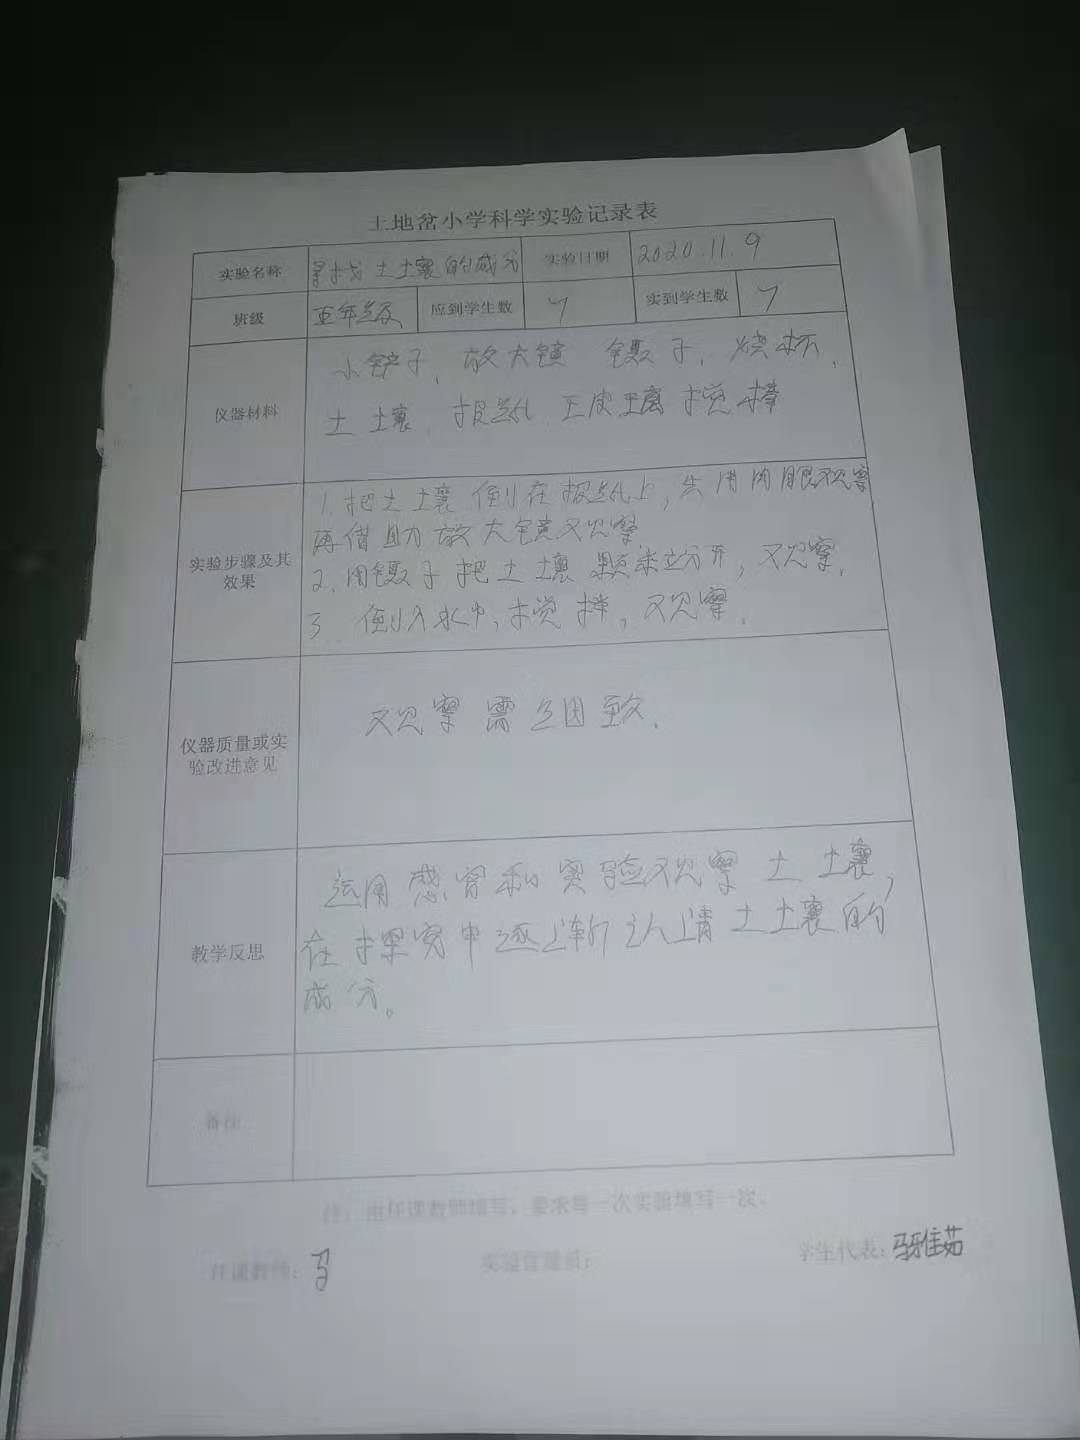 土地岔小学科学实验记录表
实验名称 寻找土壤的成分 实验日期 2020.11.9
班级 五年级 应到学生数 7 实到学生数 7
仪器材料
小铲子、放大镜 镊子、烧杯、
土壤、报纸、玻璃搅棒
实验步骤及其
效果
1.把土壤倒在报纸上,先用肉眼观察
再借助放大镜观察
2.用镊子把土壤颗粒分开,观察.
3.倒入水中,搅拌,观察.
仪器质量或实
验改进意见
观察需细致.
教学反思
运用感官和实验观察土壤,
在探究中逐渐认清土壤的
成分。
备注
注:由任课教师填写,要求每一次实验填写一次。
任课教师: 实验管理员: 学生代表:马雅茹